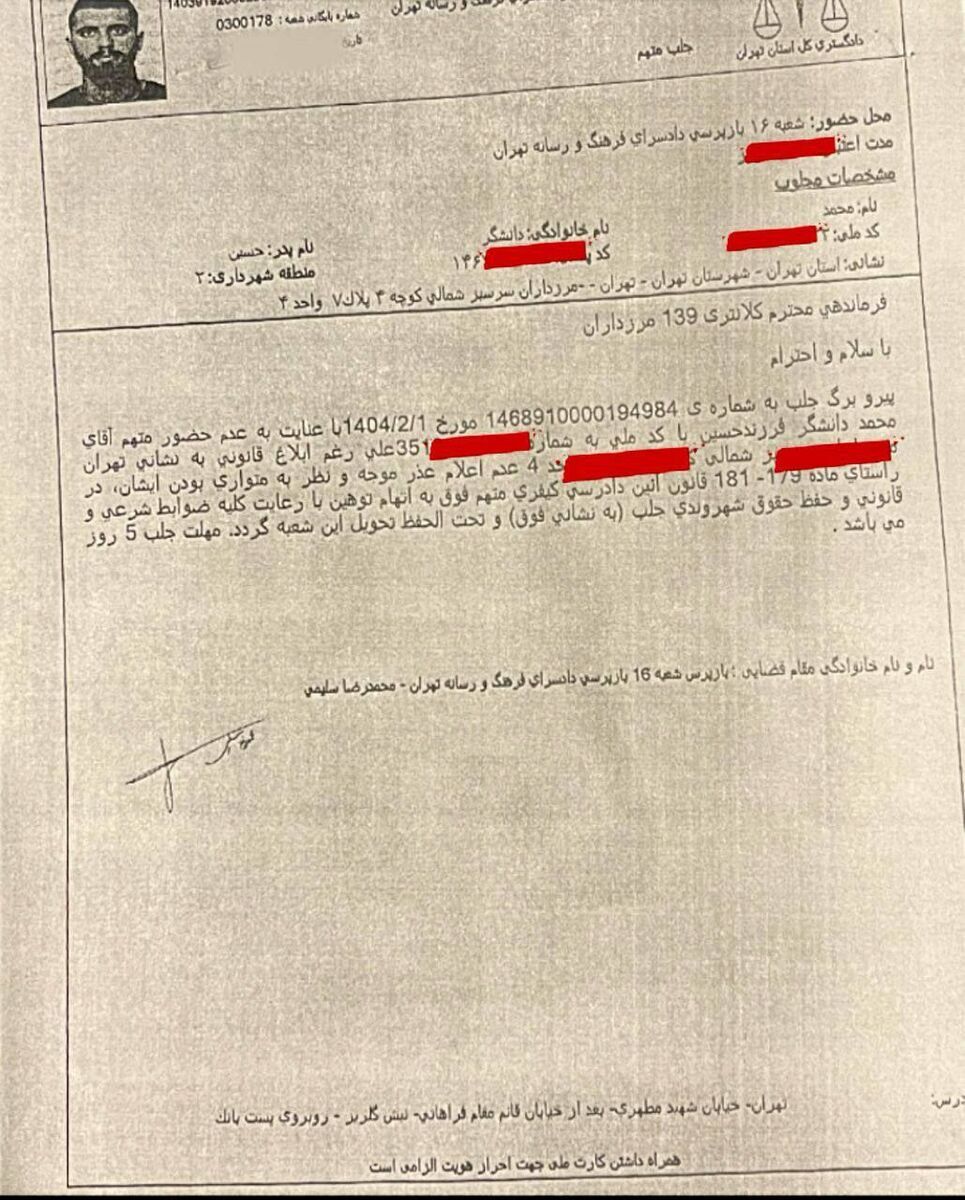 شماره بایگانی شعبه : 0300178
فرهنگ و رسانه تهران
تاریخ
جلب متهم
دادگستری کل استان تهران
محل حضور: شعبه ۱۶ بازپرسي دادسراي فرهنگ و رسانه تهران
مدت
مشخصات مجلوب
نام: محمد
نام خانوادگی: دانشگر
نام پدر: حسین
کد ملی: ۲
کد ۱۴۶
منطقه شهرداری: ۲
نشانی: استان تهران - شهرستان تهران - تهران - -مرزداران سرسبز شمالي کوچه ۴ پلاک۷ واحد ۴
فرماندهي محترم کلانتری 139 مرزداران
با سلام و احترام
پیرو برگ جلب به شماره ی 1468910000194984 مورخ 1404/2/1با عنایت به عدم حضور متهم آقاي
محمد دانشگر فرزندحسین با کد ملي به 351علي رغم ابلاغ قانوني به نشاني تهران
شمالی 4 عدم اعلام عذر موجه و نظر به متواري بودن ایشان، در
راستاي ماده 179- 181 قانون آئین دادرسي کیفري متهم فوق به اتهام توهین با رعایت کلیه ضوابط شرعي و
قانوني و حفظ حقوق شهروندي جلب (به نشاني فوق) و تحت الحفظ تحویل این شعبه گردد. مهلت جلب 5 روز
مي باشد .
نام و نام خانوادگي مقام قضایي : بازپرس شعبه 16 بازپرسي دادسراي فرهنگ و رسانه تهران - محمدرضا سلیمي
تهران- خیابان شهید مطهري- بعد از خیابان قائم مقام فراهاني- نبش گلریز - روبروي پست بانك
همراه داشتن کارت ملي جهت احراز هویت الزامي است